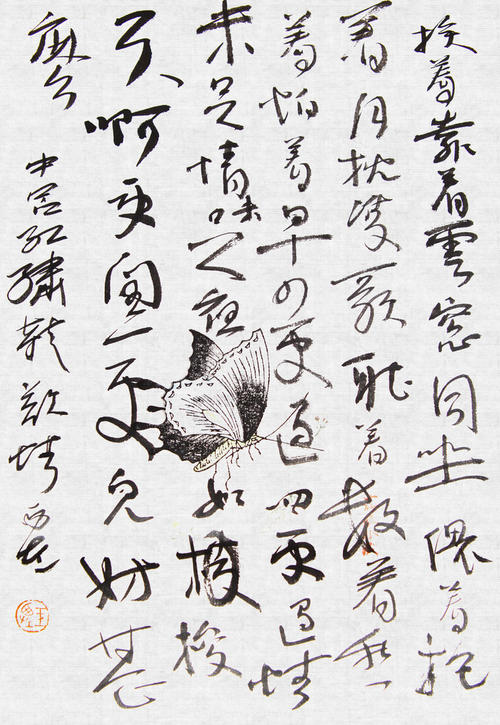 挨着靠着雲窗同坐偎着抱
着月枕雙歌聽着数着愁
着怕着早四更過四更過情
未足情味足夜如梭
天啊更闰一更兒妨甚
麽
中吕红繡鞋歡情